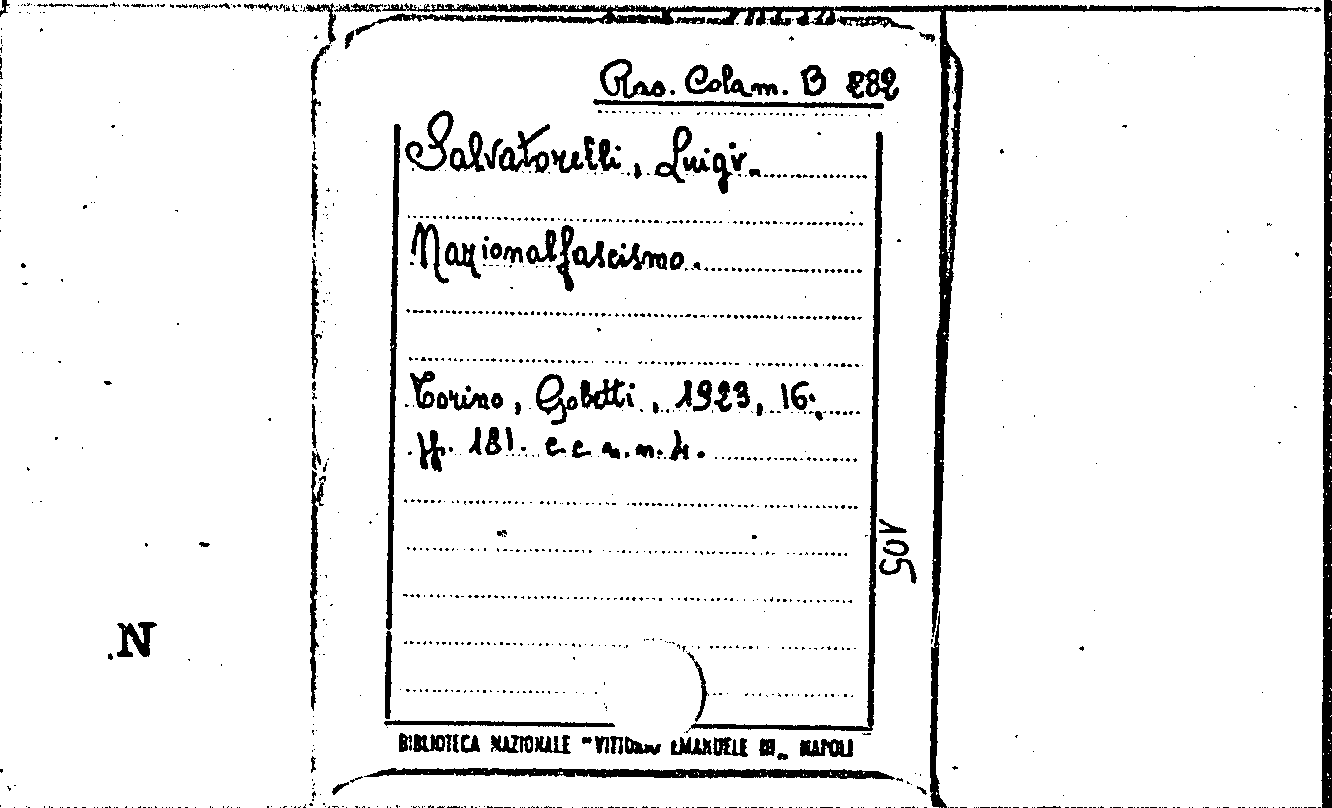 Rac. Colam. B 282
Salvatorelli, Luigi.
Nazionalfascismo.
Torino, Gobetti, 1923, 16.
pp. 181. e c n.n.
105
N
BIBLIOTECA NAZIONALE "VITTORIO EMANUELE III„ NAPOLI